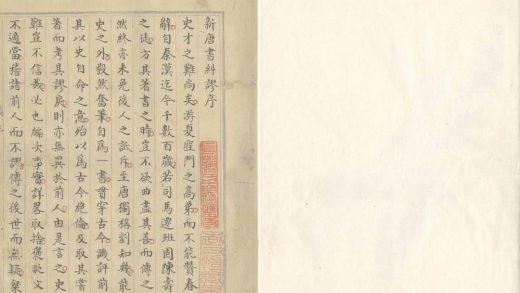 新唐書糾謬序
史才之難尚矣游夏聖門之高弟而不能贊春
辭自秦漢迄今千數百歲若司馬遷班固陳壽
之徒方其著書之時豈不欲曲盡其善而傳之
然終亦未免後人之詆斥至唐獨稱劉知幾能
史之外毅然奮筆自為一書貫穿古今譏評前
其以史自命之意殆以為古今絶倫及取其嘗
著而考其謬戾則亦無異於前人由是言之史
難豈不信哉必也編次事實詳畧取捨褒貶文
不適當稽諸前人而不謬傳之後世而無疑粲